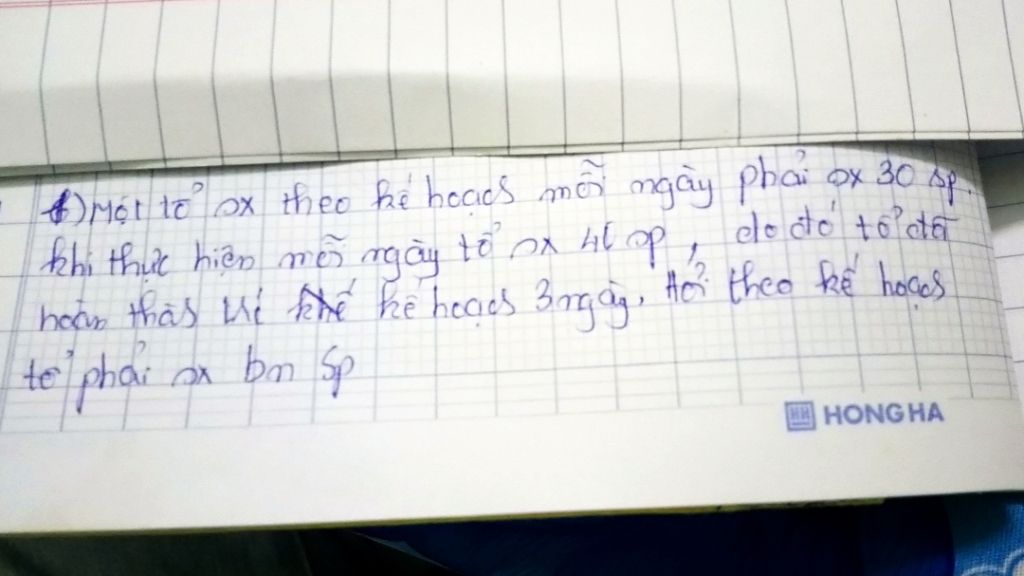 f) Một tổ sx theo kế hoạcs mỗi ngày phải sx 30 sp.
khi thực hiện mỗi ngày tổ sx 40 sp, do đó tổ đã
hoàn thàs kế hoạcs 3 ngày, Hỏi theo kế hoạcs
tổ phải sx bn sp
HONG HA